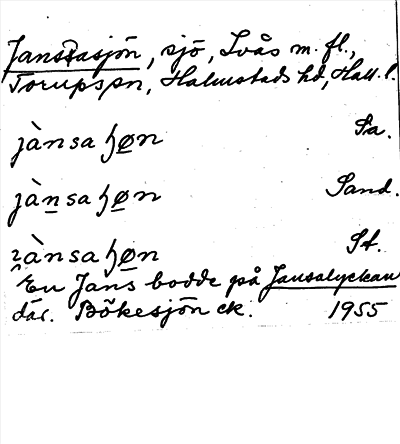 Jansasjön, sjö, Lvås m. fl.,
Torupspn, Halmstads hd, Hall. l.
jànsaɧøn Sa.
jànsaɧøn Sand.
jànsaɧøn St.
En Jans bodde på Jansalyckan
där. Bökesjön ek. 1955